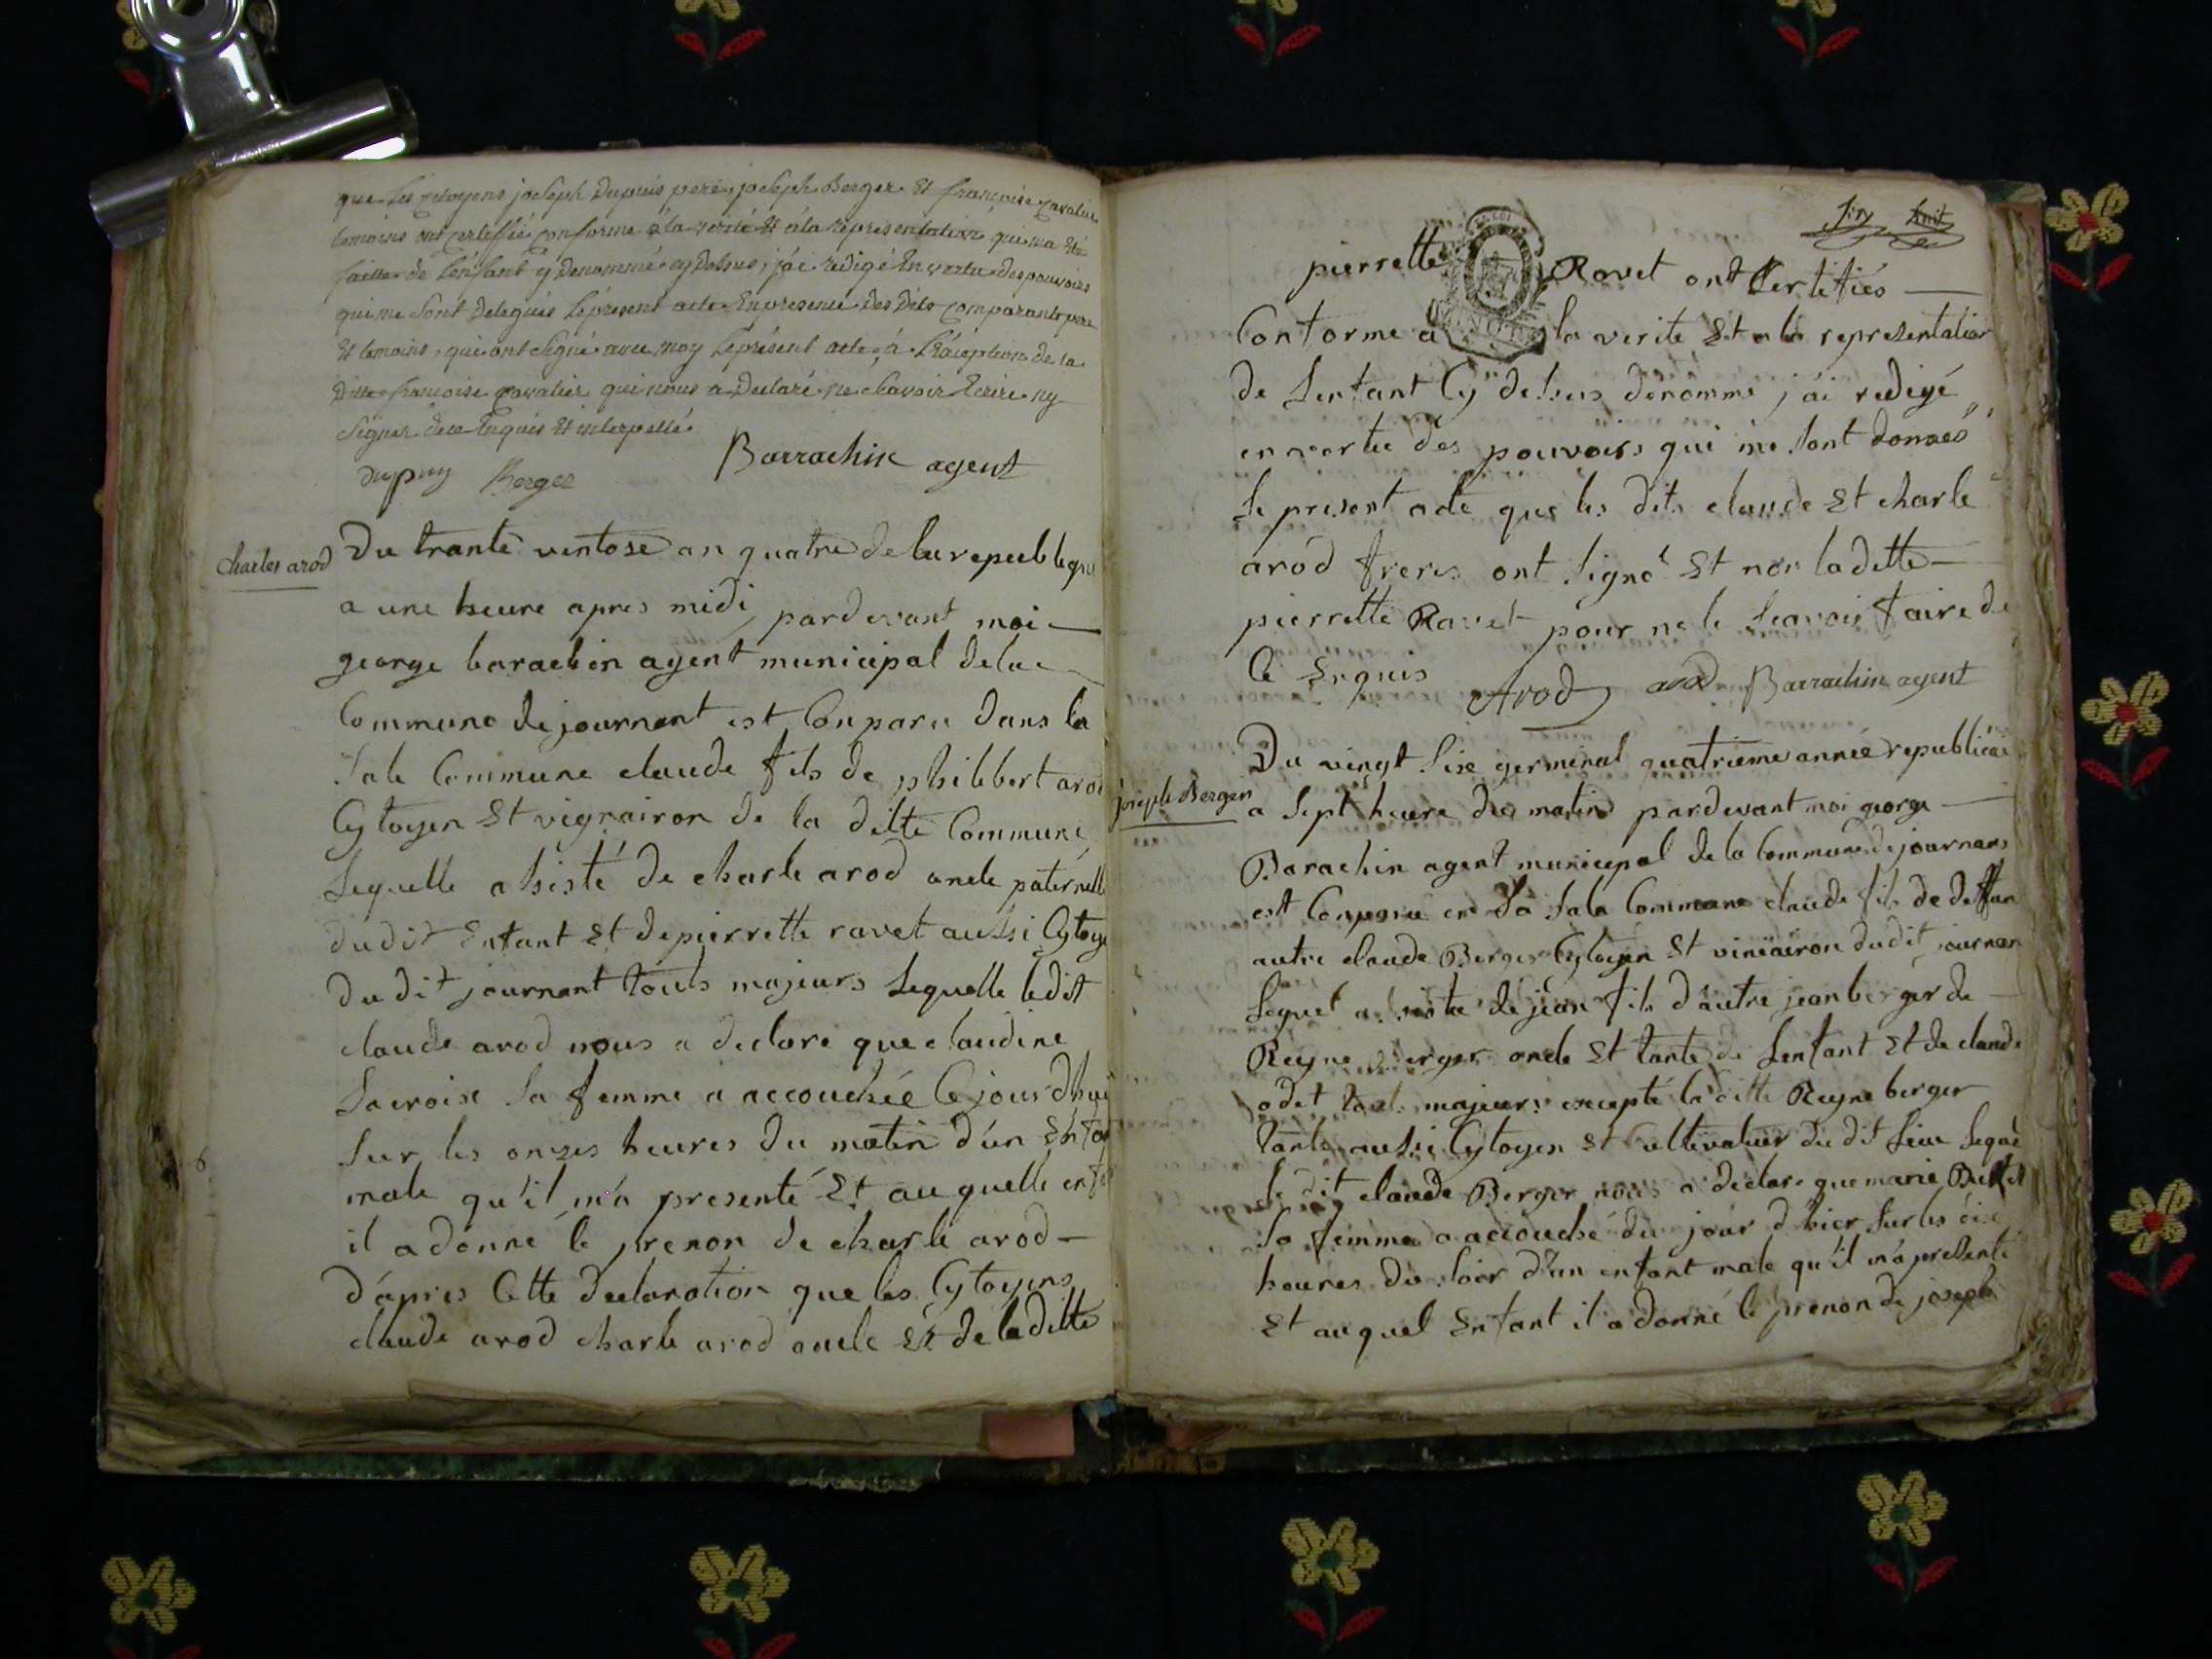 que Les Citoyens joseph Dupuis pere, joseph Berger Et françoise Cavalier
temoins ont Certeffié Conforme a la verité Et a la representation qui ma Eté
faitte de L'enfant cy Denommé cy Dessus, j'ai redigé En vertu des pouvoirs
qui me Sont Delegués Le présent acte En presence des Dits Comparants pere
Et temoins, qui ont Signé avec moy Le présent acte, á L'éxception de la
Ditte françoise Cavalier qui nous a Declaré ne Sçavoir Ecrire ny
Signer de ce Enquis Et interpellé.
dupuy Berger Barrachin agent
charles arod
Du trante ventose an quatre de la republique
a une heure apres midi, pardevant moi
george barachin agent municipal de la
Commune de journant est Conparu dans la
Sale Commune claude fils de philibert arod
Cytoyen Et vignairon de la ditte Commune
Lequelle assisté de charle arod oncle paternelle
dudit Enfant Et de pierrette ravet aussi Cytoye
du dit journant touts majeurs Lequelle ledit
claude arod nous a declare que claudine
Lacroix Sa femme a accouchée Cejourdhui
Sur les onzes heures du matin d'un Enfan
male qu'il m'a presenté Et au quelle enfan
il a donné le prenon de charle arod
d'apres Cette declaration que les Cytoyens
claude arod charle arod oncle Et de laditte
pierrette Ravet ont Certifiés
Conforme a la verite Et a la representation
de Lenfant Cy dessus denommé j'ai redigé
en vertu des pouvoirs qui me Sont donnes
Le present acte que les dits claude Et charle
arod freres ont Signé Et non laditte
pierrette Ravet pour ne le Scavoir faire de
Ce Enquis Arod arod Barrachin agent
joseph Berger
Du vingt Six germinal quatrieme année republicai
a Sept heure du matin pardevant moi george
Barachin agent municipal de la Commune de journans
est Conparu en la Sale Commune claude fils de deffun
autre claude Berger Cytoyen Et viniairon dudit journan
Lequel assisté de jean fils d'autre jean berger de
Reyne Berger oncle Et tante de Lenfant Et de claude
odet touts majeurs excepté la ditte Reyne berger
tante aussi Cytoyen Et Cultivateur du dit Lieu Lequel
Le dit claude Berger nous a declare que marie
Sa femme a accouché du jour d'hier Sur les
heures du Soir d'un enfant male qu'il m'a presenté
Et auquel Enfant il a donné le prenon de joseph